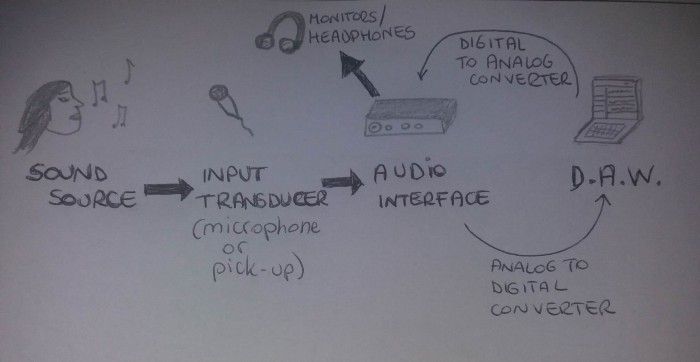 MONITORS/
HEADPHONES
DIGITAL
TO ANALOG
CONVERTER
SOUND
SOURCE
INPUT
TRANSDUCER
(microphone
or
pick-up)
AUDIO
INTERFACE
D.A.W.
ANALOG TO
DIGITAL
CONVERTER